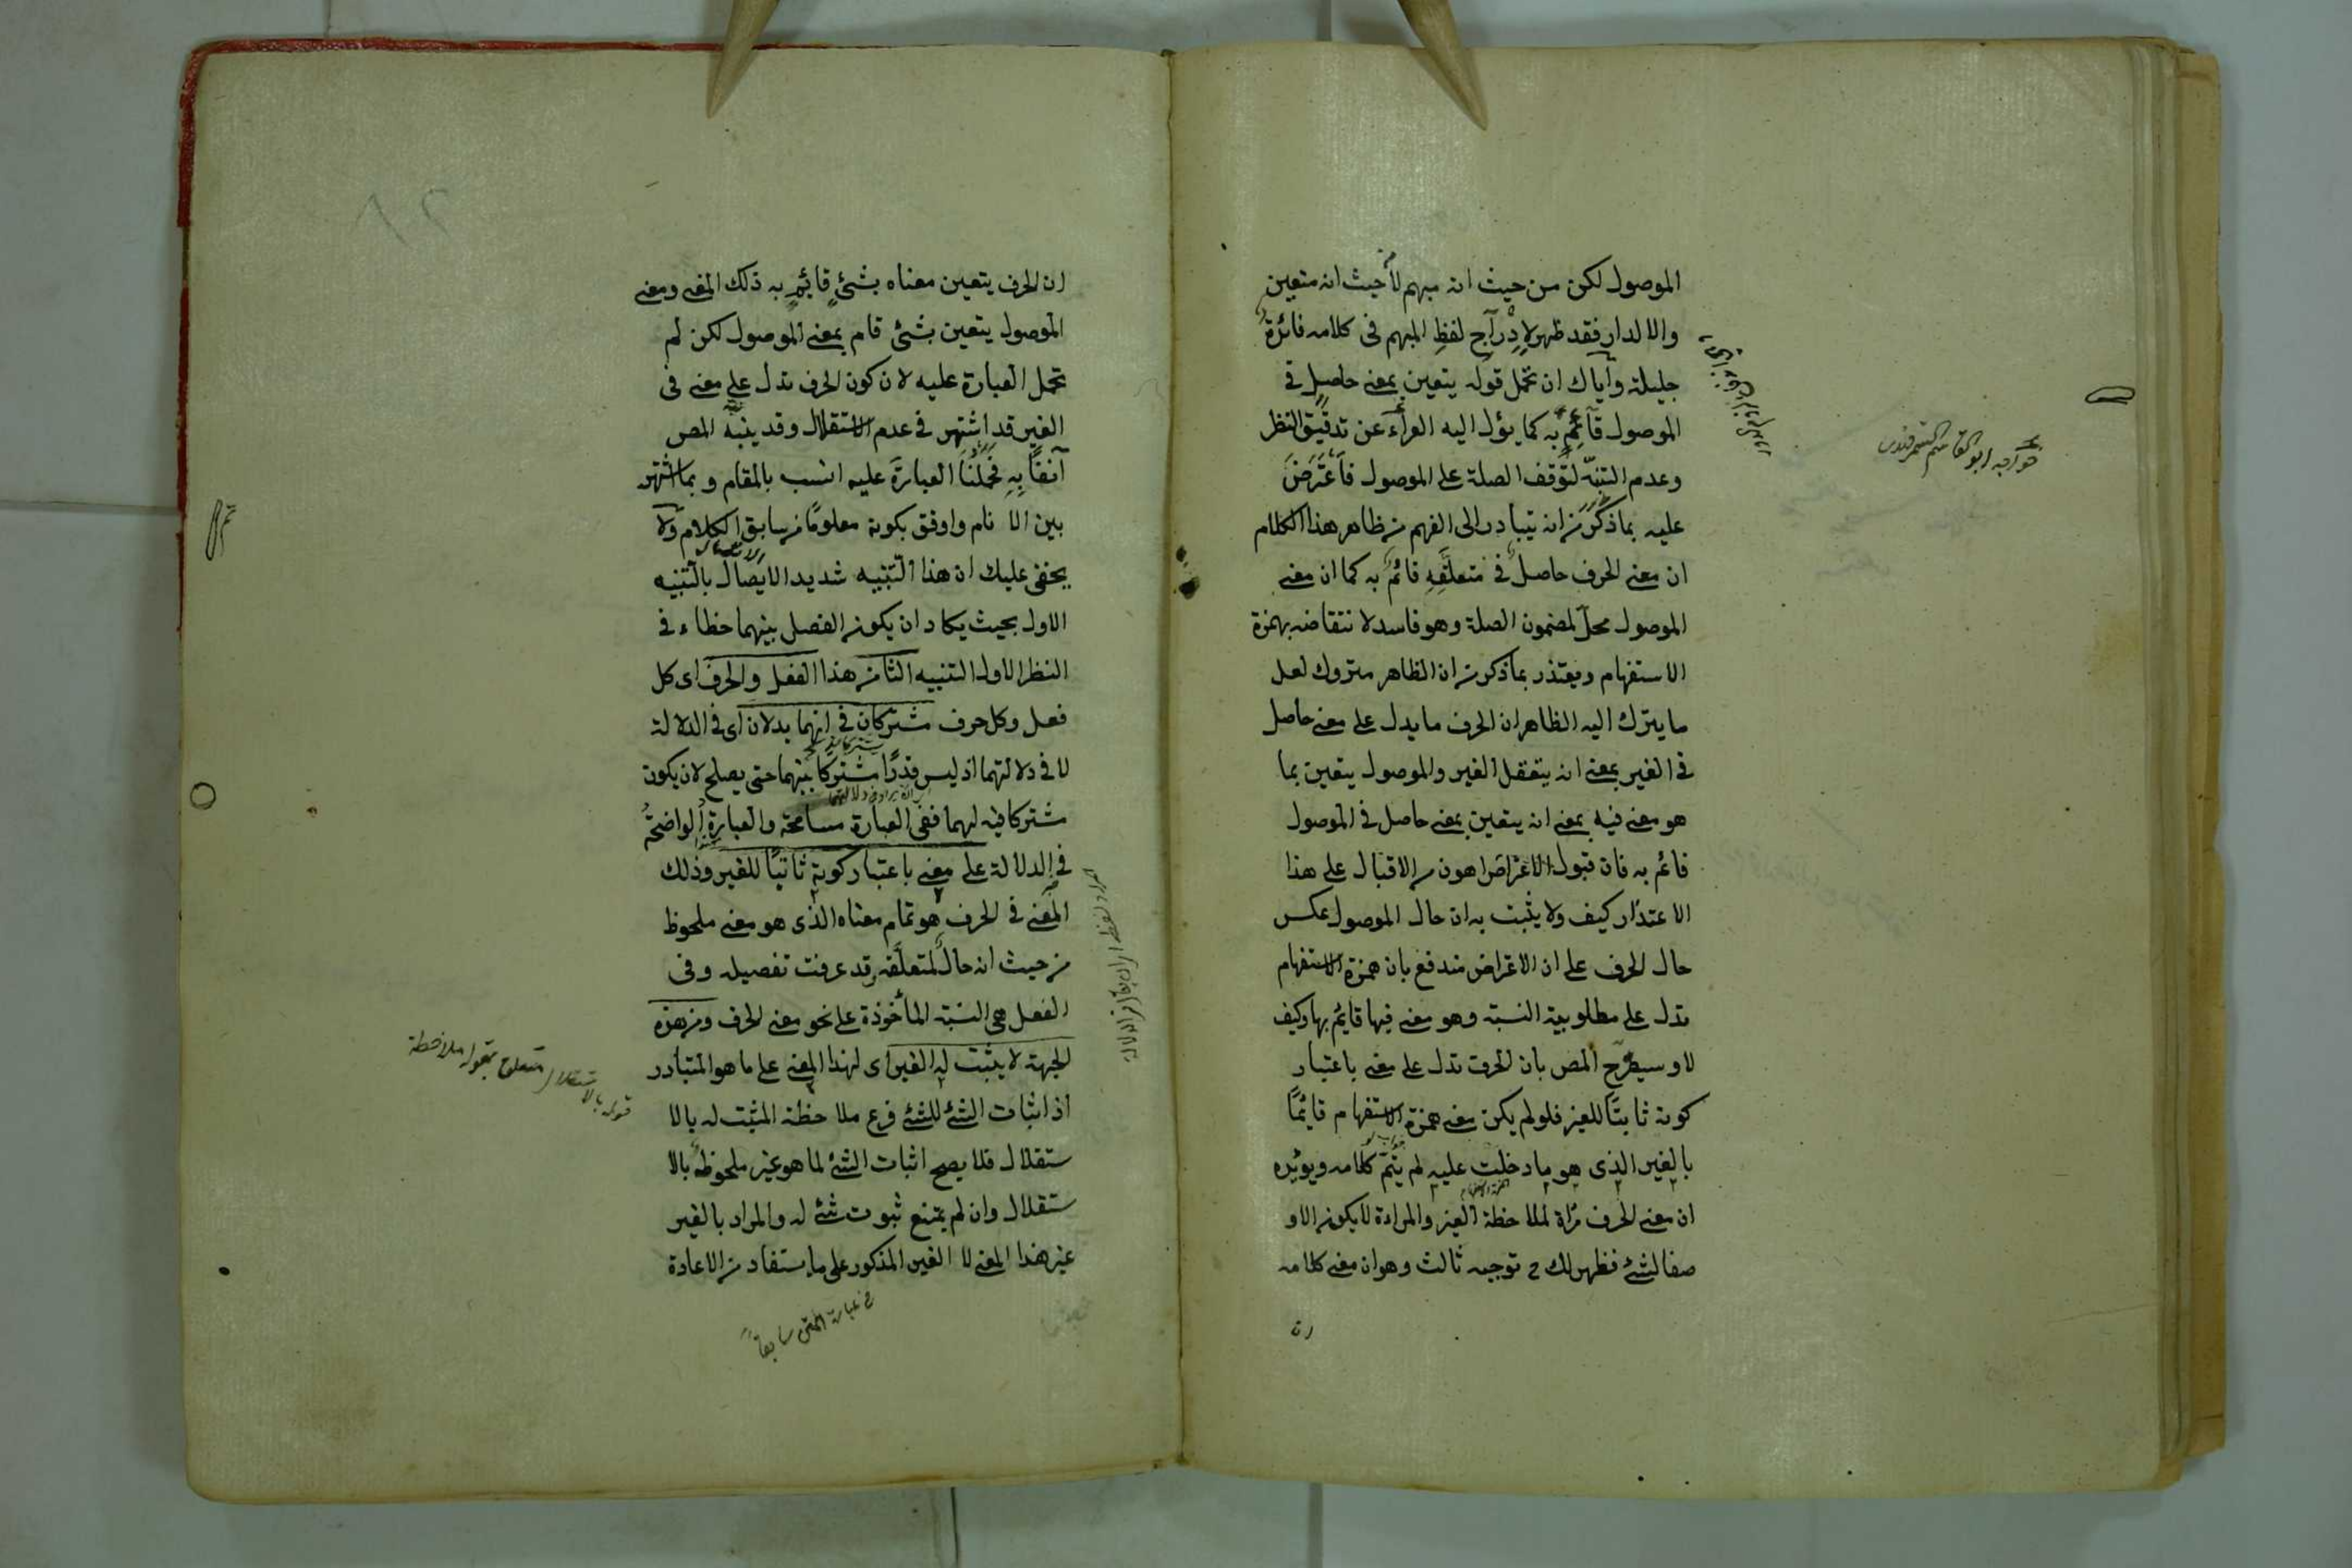 الموصول لكن من حيث انه مبهم لا من حيث انه متعين
والا لدار فقد ظهر لادراج لفظ المبهم فى كلامه فائدة
جليلة واياك ان تحمل قوله يتعين بمعنى حاصل فى
الموصول قائم به كما يؤل اليه العراء عن تدقيق النظر
وعدم التنبه لتوقف الصلة على الموصول فاعترض
عليه بما ذكر من انه يتبادر الى الفهم من ظاهر هذا الكلام
ان معنى الحرف حاصل فى متعلقه قائم به كما ان معنى
الموصول محل لمضمون الصلة وهو فاسد لانتقاضه بهمزة
الاستفهام ويعتذر بما ذكر من ان الظاهر متروك لعل
ما يترك اليه الظاهر ان الحرف ما يدل على معنى حاصل
فى الغير بمعنى انه يتعقل الغير والموصول يتعين بما
هو معنى فيه بمعنى انه يتعين بمعنى حاصل فى الموصول
قائم به فان قبول الاعتراض اهون من الاقبال على هذا
الاعتذار كيف ولا يثبت به ان حال الموصول عكس
حال الحرف على ان الاعتراض مندفع بان همزة الاستفهام
تدل على مطلوبية النسبة وهو معنى فيها قايم بها وكيف
لا وسيصرح المص بان الحرف تدل على معنى باعتبار
كونه ثابتا للغير فلو لم يكن معنى همزة الاستفهام قايما
بالغير الذى هو ما دخلت عليه لم يتم كلامه ويؤيده
ان معنى الحرف مرآة لملاحظة الغير والمرآة لا يكون الا و
صفا لشئ فظهر لك ح توجيه ثالث وهو ان معنى كلامه
ان
خواجه ابو القاسم السمرقندى
ان الحرف يتعين معناه بشئ قائم به ذلك المعنى ومعنى
الموصول يتعين بشئ قام بمعنى الموصول لكن لم
تحمل العبارة عليه لان كون الحرف تدل على معنى فى
الغير قد اشتهر فى عدم الاستقلال وقد ينبه المص
آنفا به فحملنا العبارة عليه انسب بالمقام وبما اشتهر
بين الانام واوفق بكونه معلوما من سابق الكلام ولا
يخفى عليك ان هذا التنبيه شديد الايصال بالتنبيه
الاول بحيث يكاد ان يكون الفصل بينهما خطاء فى
النظر الاول التنبيه الثامن هذا الفعل والحرف اى كل
فعل وكل حرف مشتركان فى انهما يدلان اى فى الدلالة
لا فى دلالتهما اذ ليس قدرا مشتركا بينهما حتى يصلح لان يكون
مشتركا فيه لهما ففى العبارة مسامحة والعبارة الواضحة
فى الدلالة على معنى باعتبار كونه ثابتا للغير وذلك
المعنى فى الحرف هو تمام معناه الذى هو معنى ملحوظ
من حيث انه حال لمتعلقه وقد عرفت تفصيله وفى
الفعل هى النسبة المأخوذة على نحو معنى الحرف ومن هذه
الجهة لا يثبت له الغير اى لهذا المعنى على ما هو المتبادر
اذ اثبات الشئ للشئ فرع ملاحظة المثبت له بالا
ستقلال فلا يصح اثبات الشئ لما هو غير ملحوظ بالا
ستقلال وان لم يمتنع ثبوت شئ له والمراد بالغير
غير هذا المعنى لا الغير المذكور على ما يستفاد من الاعادة
فى عبارة المتن سابقا
قوله بالاستقلال متعلق بقوله ملاحظة